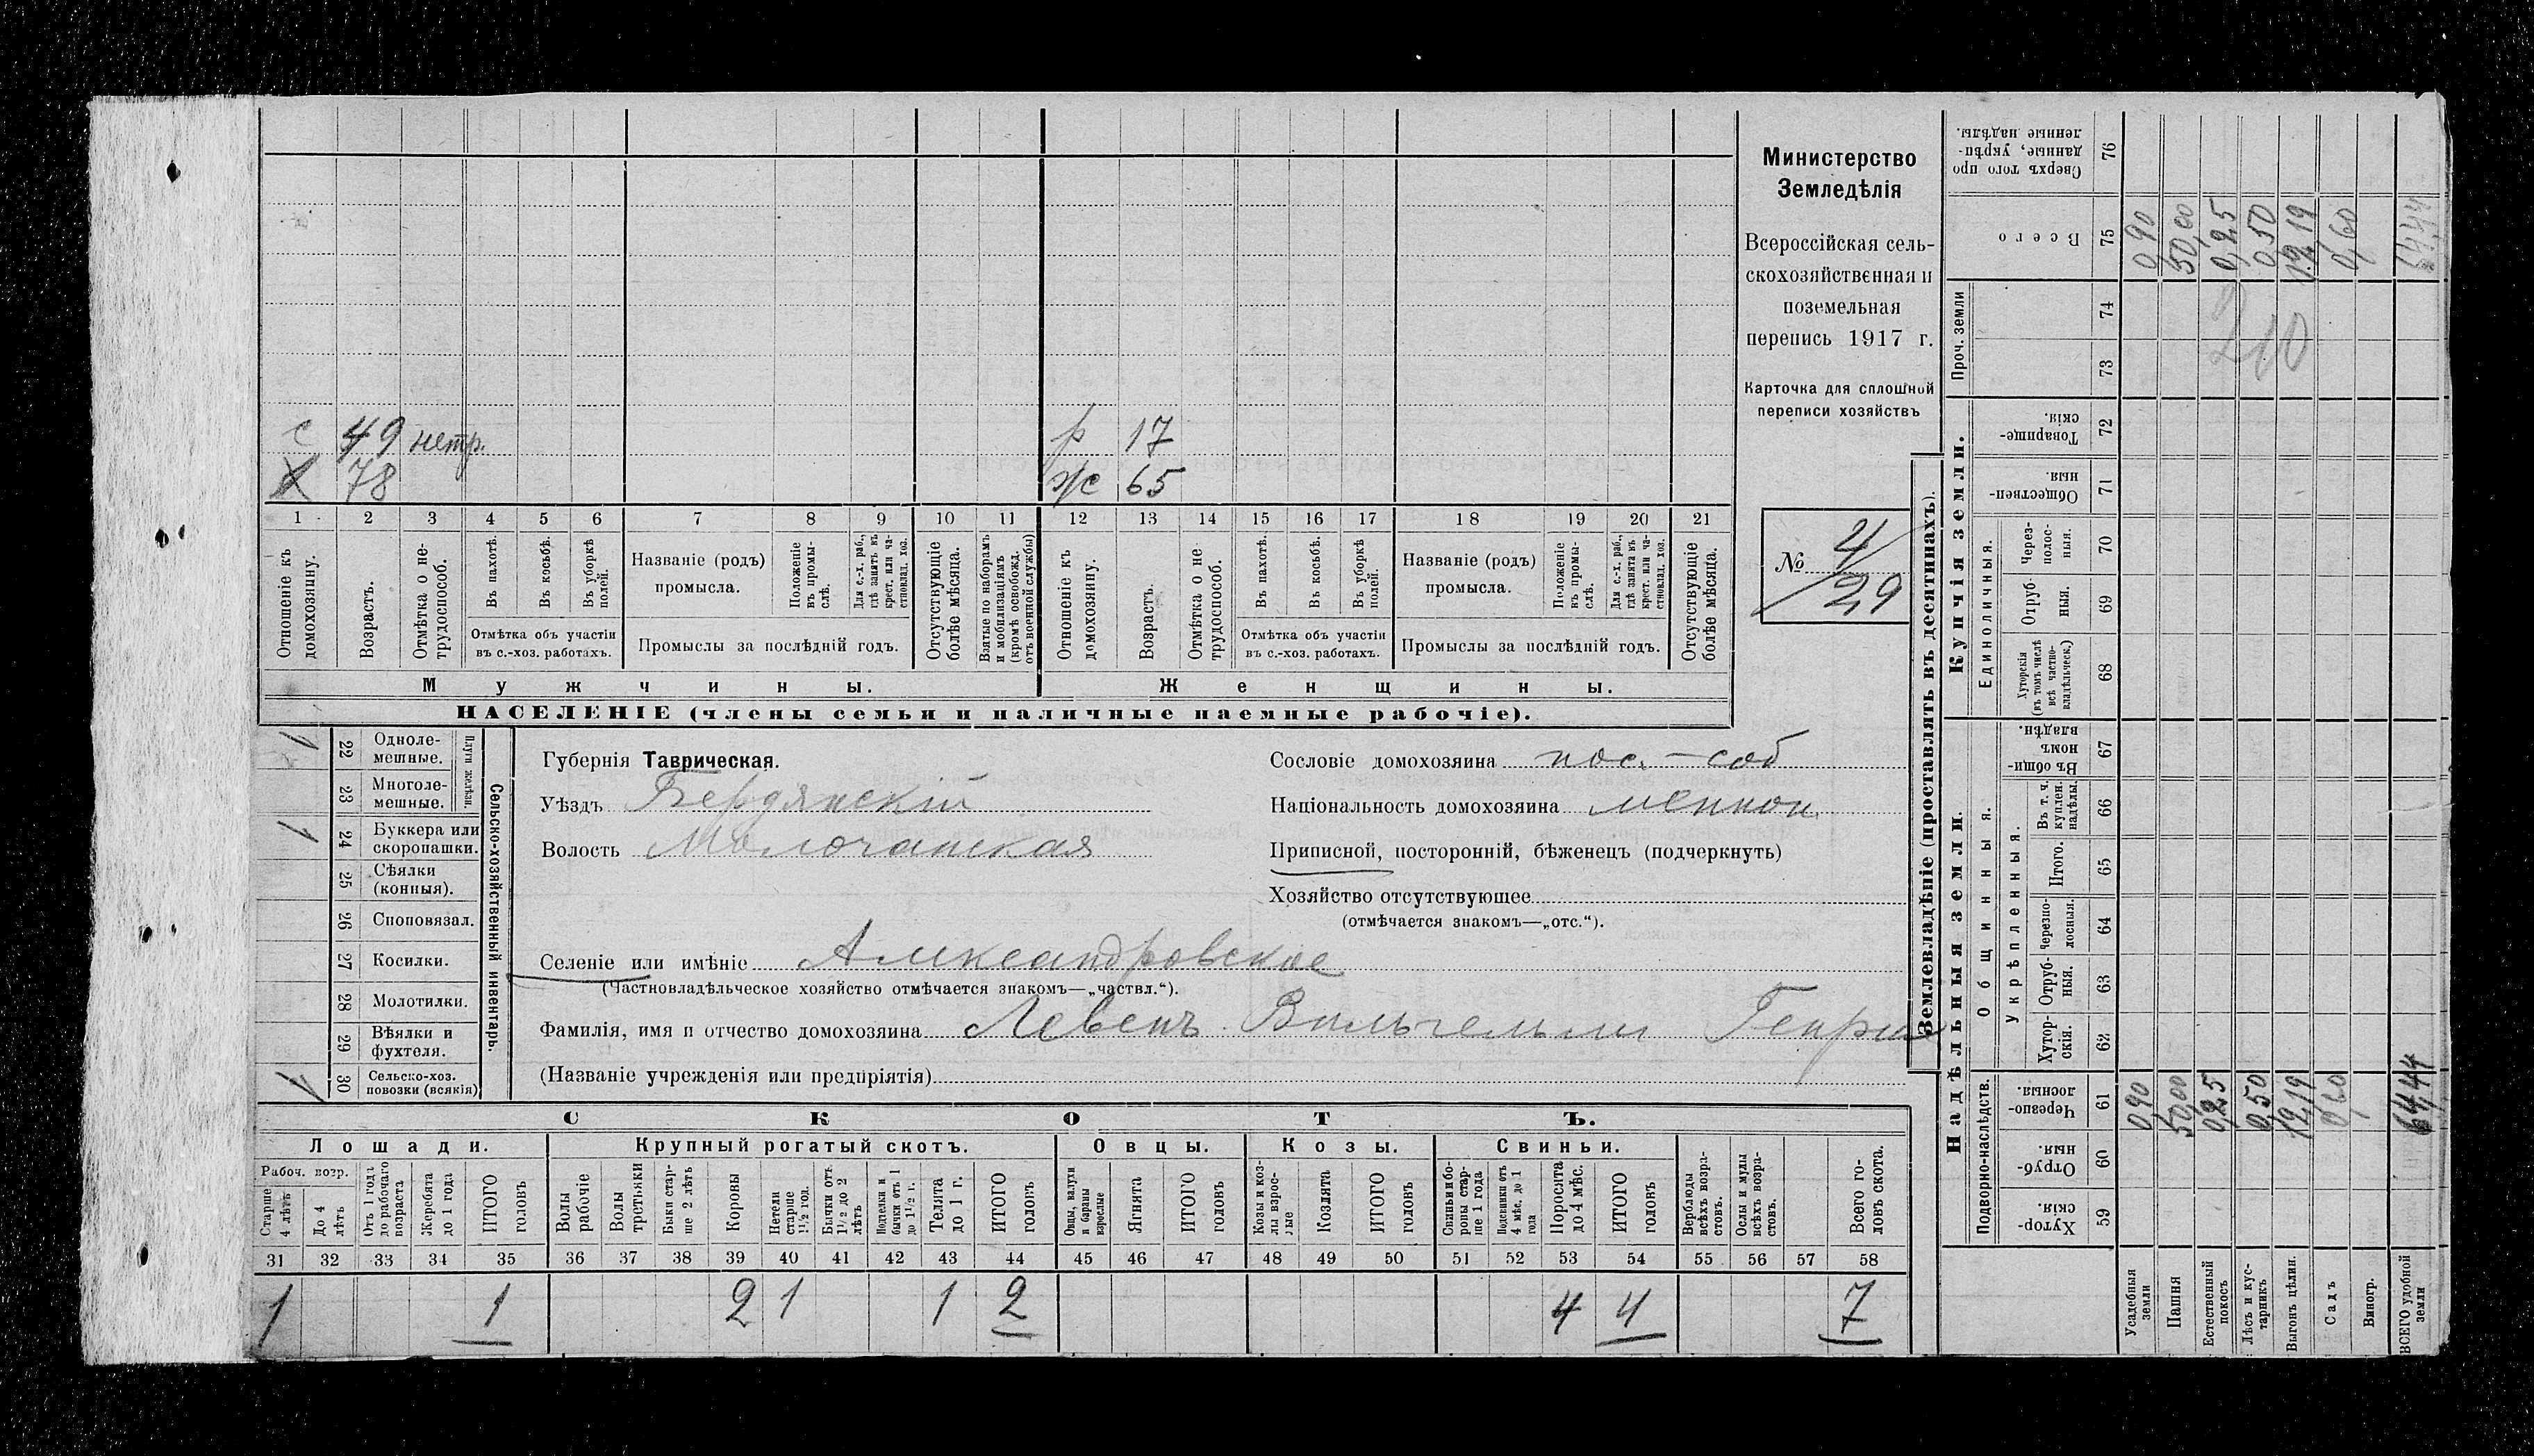 Министерство
Земледѣлія
Всероссійская сель-
скохозяйственная и
поземельная
перепись 1917 г.
Карточка для сплошной
переписи хозяйствъ
№ 4/29
с 49 нетр.
78
р 17
ж 65
1 2 3 4 5 6 7 8 9 10 11 12 13 14 15 16 17 18 19 20 21
Отношеніе къ домохозяину.
Возрастъ.
Отмѣтка о не-трудоспособ.
Въ пахотѣ.
Въ косьбѣ.
Въ уборкѣ полей.
Отмѣтка объ участіи въ с.-хоз. работахъ.
Названіе (родъ) промысла.
Положеніе въ промы-слѣ.
Для с.-х. раб., гдѣ занятъ въ крест. или ча-стновлад. хоз.
Промыслы за послѣдній годъ.
Отсутствующіе болѣе мѣсяца.
Взятые по наборамъ и мобилизаціямъ (кромѣ освобожд. отъ военной службы)
Отношеніе къ домохозяину.
Возрастъ.
Отмѣтка о не трудоспособ.
Въ пахотѣ.
Въ косьбѣ.
Въ уборкѣ полей.
Отмѣтка объ участіи въ с.-хоз. работахъ.
Названіе (родъ) промысла.
Положеніе въ промы-слѣ.
Для с.-х. раб., гдѣ занята въ крест. или ча-стновлад. хоз.
Промыслы за послѣдній годъ.
Отсутствующіе болѣе мѣсяца.
Мужчины.
Женщины.
НАСЕЛЕНІЕ (члены семьи и наличные наемные рабочіе).
Сельско-хозяйственный инвентарь.
Плуги желѣзн.
1 22 Одноле-мешные.
23 Многоле-мешные.
1 24 Буккера или скоропашки.
25 Сѣялки (конныя).
26 Сноповязал.
27 Косилки.
28 Молотилки.
29 Вѣялки и фухтеля.
1 30 Сельско-хоз. повозки (всякія)
Губернія Таврическая.
Уѣздъ Бердянскій
Волость Молочанская
Сословіе домохозяина пос.-соб
Національность домохозяина меннон.
Приписной, посторонній, бѣженецъ (подчеркнуть)
Хозяйство отсутствующее
(отмѣчается знакомъ—„отс.“).
Селеніе или имѣніе Александровское
(Частновладѣльческое хозяйство отмѣчается знакомъ—„частвл.“).
Фамилія, имя и отчество домохозяина Левенъ Вильгельм Генри
(Названіе учрежденія или предпріятія)
СКОТЪ.
Лошади.
Крупный рогатый скотъ.
Овцы.
Козы.
Свиньи.
Рабоч. возр.
Старше 4 лѣтъ
До 4 лѣтъ
Отъ 1 года до рабочаго возраста
Жеребята до 1 года
ИТОГО головъ
Волы рабочіе
Волы третьяки
Быки стар-ше 2 лѣтъ
Коровы
Нетели старше 1½ год.
Бычки отъ 1½ до 2 лѣтъ
Нетелки и бычки отъ 1 до 1½ г.
Телята до 1 г.
ИТОГО головъ
Овцы, валухи и бараны взрослые
Ягнята
ИТОГО головъ
Козы и коз-лы взрос-лые
Козлята
ИТОГО головъ
Свиньи бо-ровы стар-ше 1 года
Подсвинки отъ 4 мѣс. до 1 года
Поросята до 4 мѣс.
ИТОГО головъ
Верблюды всѣхъ возра-стовъ.
Ослы и мулы всѣхъ возра-стовъ.
Всего го-ловъ скота.
31 32 33 34 35 36 37 38 39 40 41 42 43 44 45 46 47 48 49 50 51 52 53 54 55 56 57 58
1 1 2 1 1 2 4 4 7
Землевладѣніе (проставлять въ десятинахъ).
Купчія земли.
Надѣльныя земли.
Сверхъ того про данные, укрѣп-ленные надѣлы. 76
Всего 75 0,90 50,00 0,25 0,50 12,19 0,60
Проч. земли 74 73
210
Товарище-скія. 72
Обществен-ныя 71
Единоличныя.
Через-полос-ныя. 70
Отруб-ныя. 69
Хуторскія (въ томъ числѣ всѣ частно-владѣльческ.) 68
Общинныя.
Въ общи-номъ владѣн. 67
Укрѣпленныя.
Въ т. ч. куплен. надѣлы. 66
Итого. 65
Черезпо-лосныя. 64
Отруб-ныя. 63
Хутор-скія. 62
Подворно-наслѣдств.
Черезпо-лосныя. 61 0,90 50,00 0,25 0,50 12,19 0,60 64,44
Отруб-ныя. 60
Хутор-скія. 59
Усадебныя земли
Пашня
Естественный покосъ
Лѣсъ и кус-тарникъ
Выгонъ цѣлин.
Садъ
Виногр.
ВСЕГО удобной земли